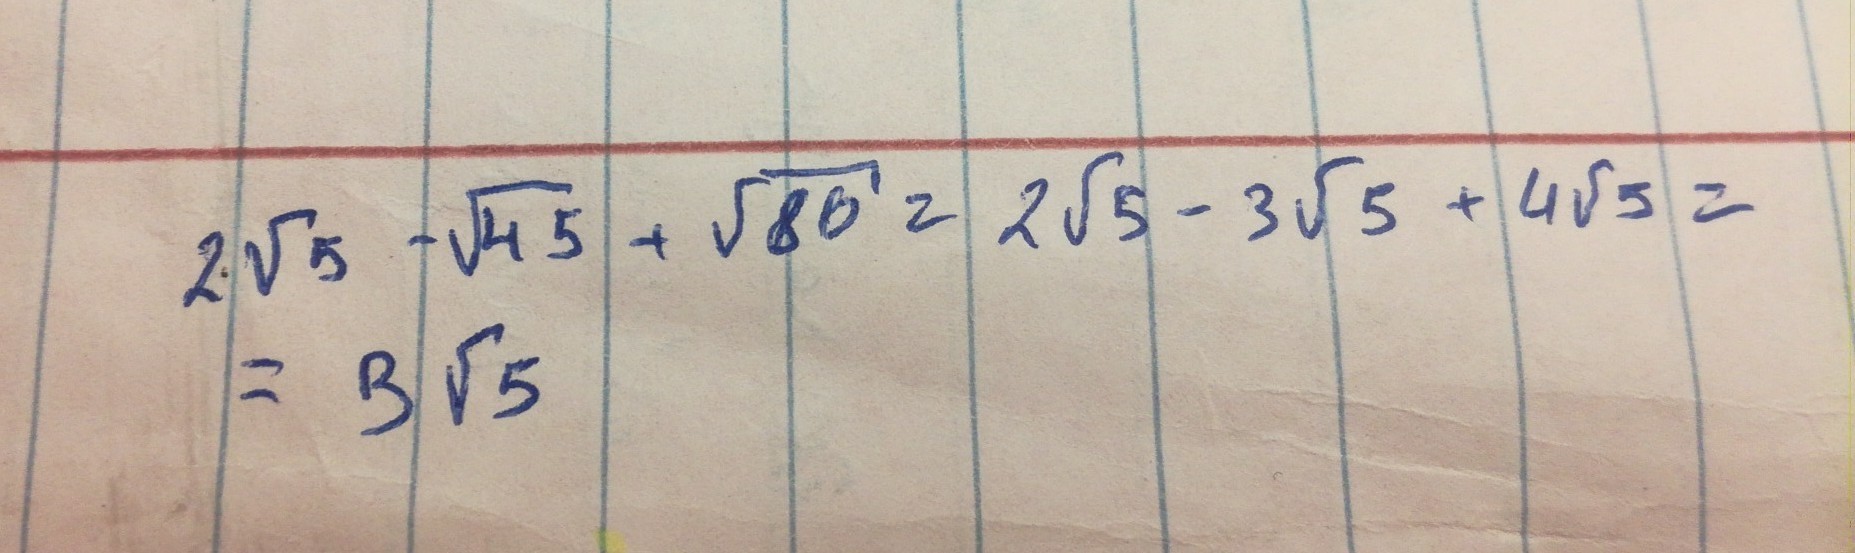 2√5 - √45 + √80 = 2√5 - 3√5 + 4√5 =
= 3√5